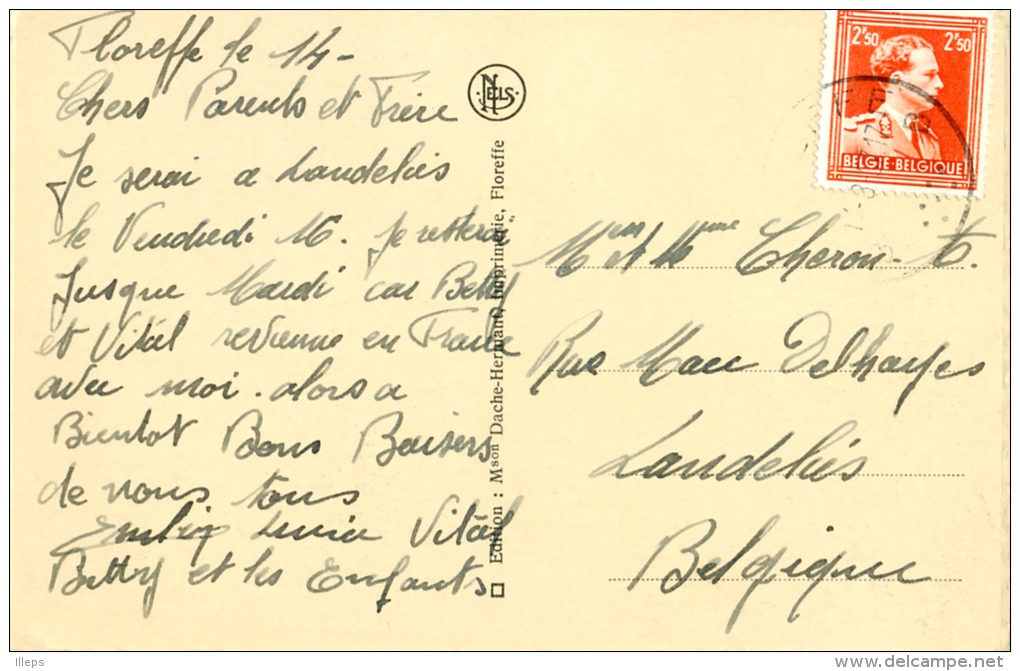 Floreffe le 14-
Chers Parents et Frère
Je serai a Landelies
le Vendredi 16. Je resterai
Jusque Mardi car Betty
et Vital revienne en France
avec moi. alors a
Bientot Bons Baisers
de nous tous
Lucie Vital
Betty et les Enfants
NELS
Edition : Mson Dache-Hermant, Imprimerie, Floreffe
2F50 2F50
BELGIE-BELGIQUE
Mr et Mme Cheron-T.
Rue Marc Delhayes
Landelies
Belgique
Illeps
delcampe.net